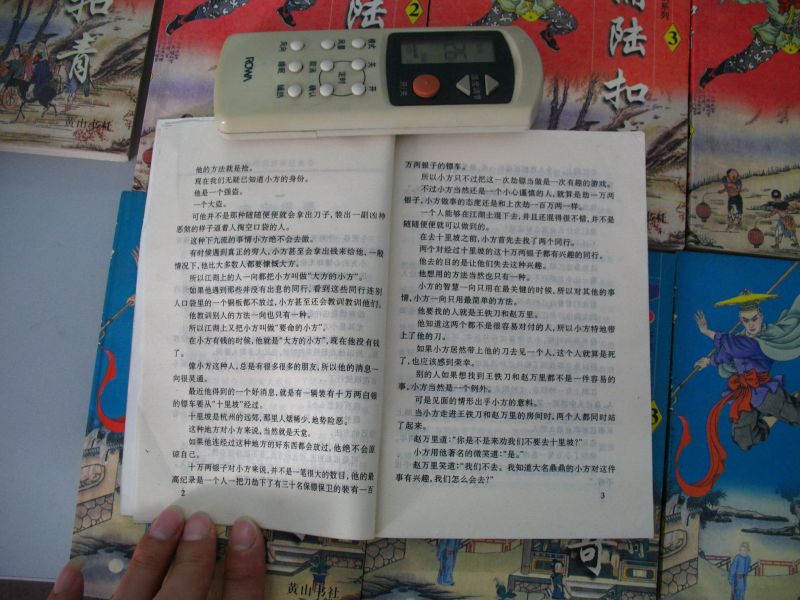 2
3
系列
陆
扣
青
黄山书社
模式
风量
风向
关
取消
睡眠
开
定时
确认
辅热
26
开/关
ROWA
他的方法就是抢。
现在我们无疑已知道小方的身份。
他是一个强盗。
一个大盗。
可他并不是那种随随便便就会拿出刀子,装出一副凶神
恶煞的样子逼着人掏空口袋的人。
这种下九流的事情小方绝不会去做。
有时候遇到真正的穷人,小方甚至会拿出钱来给他,一般
情况下,他比大多数人都要慷慨大方。
所以江湖上的人一向都把小方叫做“大方的小方”。
如果他遇到那些并没有出息的同行,看到这些同行连别
人口袋里的一个铜板都不放过,小方甚至还会教训教训他们。
他教训别人的方法一向也只有一种。
所以江湖上又把小方叫做“要命的小方”。
在小方有钱的时候,他就是“大方的小方”,现在他没有钱
了。
像小方这种人,总是有很多很多的朋友,所以他的消息一
向很灵通。
最近他得到的一个好消息,就是有一辆装有十万两白银
的镖车要从“十里坡”经过。
十里坡是杭州的远郊,那里人烟稀少,地势险恶。
这种地方对小方来说,当然就是天堂。
如果他连经过这种地方的好东西都会放过,他绝不会原
谅自己。
十万两银子对小方来说,并不是一笔很大的数目,他的最
高纪录是一个人一把刀劫下了有三十名保镖保卫的装有一百
2
万两银子的镖车。
所以小方只不过把这一次劫镖当做是一次有趣的游戏。
不过小方当然还是一个小心谨慎的人,就算是劫一万两
银子,小方做事的态度还是和上次劫一百万两一样。
一个人能够在江湖上混下去,并且还混得很不错,并不是
随随便便就可以做到的。
在去十里坡之前,小方首先去找了两个同行。
两个对经过十里坡的这十万两银子都有兴趣的同行。
他去的目的是让他们失去这种兴趣。
他想用的方法当然也只有一种。
小方的智慧一向只用在最关键的时候,所以对其他的事
情,小方一向只用最简单的方法。
他要找的人就是王铁刀和赵万里。
他知道这两个都不是很容易对付的人,所以小方特地带
上了他的刀。
如果小方居然带上他的刀去见一个人,这个人就算是死
了,也应该感到荣幸。
别的人如果想找到王铁刀和赵万里都不是一件容易的
事,小方当然是一个例外。
可是见面的情形出乎小方的意料。
当小方走进王铁刀和赵万里的房间时,两个人都同时站
了起来。
赵万里道:“你是不是来劝我们不要去十里坡?”
小方用他著名的微笑道:“是。”
赵万里笑道:“我们不去。我知道大名鼎鼎的小方对这件
事有兴趣,我们怎么会去?”
3
3
奇
黄山书社